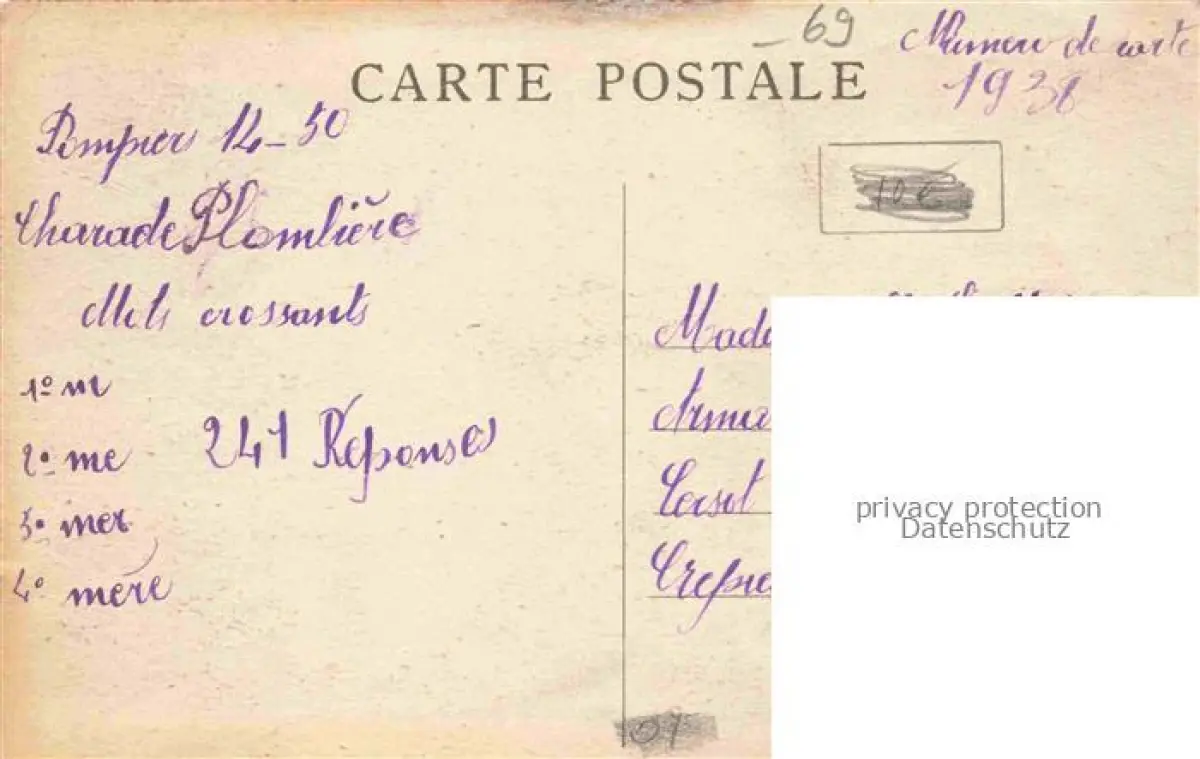 - 69
Numero de carte
1938
CARTE POSTALE
Pompiers 14-50
10 €
Charade Plombière
Mots croissants
1º m
2º me
3º mer
4º mère
241 Réponses
Mada
Arma
privacy protection
Datenschutz